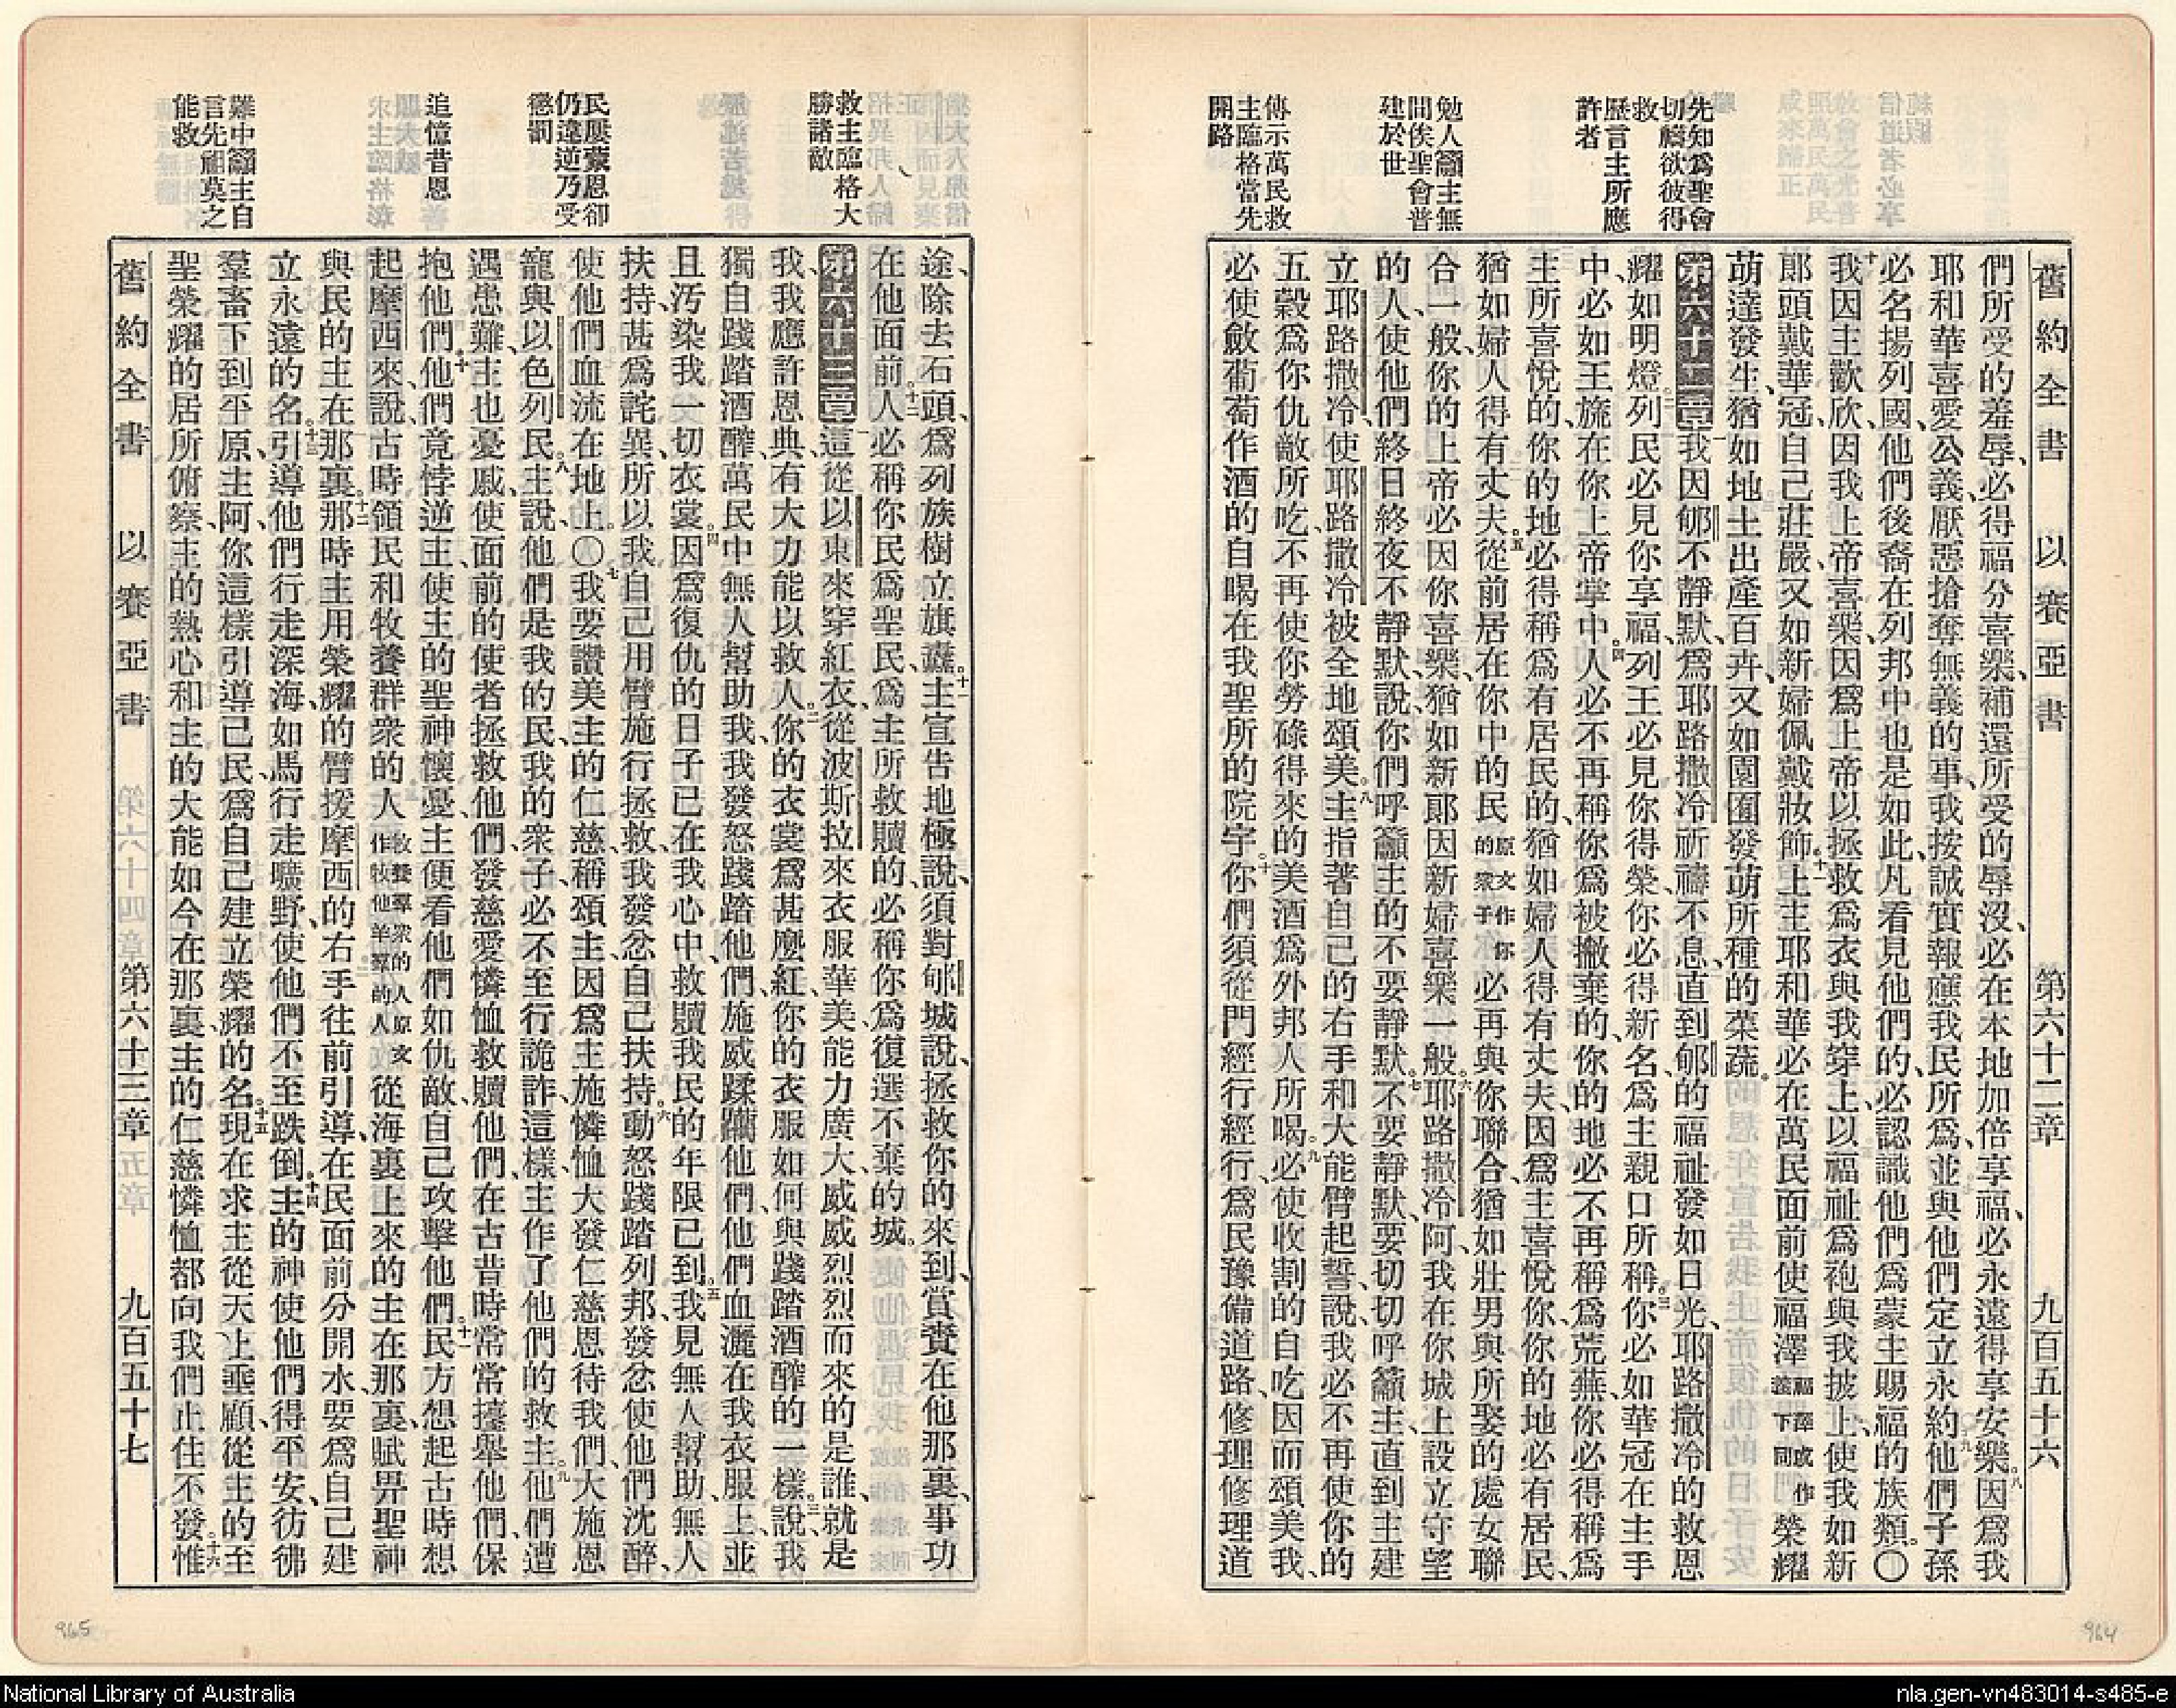 舊約全書 以賽亞書 第六十二章 九百五十六
先知爲聖會
切禱欲彼得
救
歷言主所應
許者
勉人籲主無
間俟聖會普
建於世
傳示萬民救
主臨格當先
開路
們所受的羞辱、必得福分喜樂、補還所受的辱沒、必在本地加倍享福、必永遠得享安樂。八因爲我
耶和華喜愛公義、厭惡搶奪無義的事、我按誠實報應我民所爲、並與他們定立永約。九他們子孫
必名揚列國、他們後裔在列邦中也是如此、凡看見他們的、必認識他們爲蒙主賜福的族類。〇
十我因主歡欣、因我上帝喜樂、因爲上帝以拯救爲衣與我穿上、以福祉爲袍與我披上、使我如新
郞頭戴華冠、自己莊嚴、又如新婦佩戴妝飾。十一上主耶和華必在萬民面前使福澤福澤或作義下同榮耀
萌達發生、猶如地土出產百卉、又如園囿發萌所種的菜蔬。
第六十二章一我因郇不靜默、爲耶路撒冷祈禱不息、直到郇的福祉發如日光、耶路撒冷的救恩
耀如明燈。二列民必見你享福、列王必見你得榮、你必得新名、爲主親口所稱。三你必如華冠在主手
中、必如王旒在你上帝掌中。四人必不再稱你爲被撇棄的、你的地必不再稱爲荒蕪、你必得稱爲
主所喜悅的、你的地必得稱爲有居民的、猶如婦人得有丈夫、因爲主喜悅你、你的地必有居民、
猶如婦人得有丈夫。五從前居在你中的民原文作你的衆子必再與你聯合、猶如壯男與所娶的處女聯
合一般、你的上帝必因你喜樂、猶如新郞因新婦喜樂一般。六耶路撒冷阿、我在你城上設立守望
的人、使他們終日終夜不靜默、說、你們呼籲主的不要靜默。七不要靜默、要切切呼籲主、直到主建
立耶路撒冷、使耶路撒冷被全地頌美。八主指著自己的右手和大能臂起誓、說、我必不再使你的
五穀爲你仇敵所吃、不再使你勞碌得來的美酒爲外邦人所喝。九必使收割的自吃、因而頌美我、
必使斂葡萄作酒的自喝、在我聖所的院宇。十你們須從門經行經行、爲民豫備道路、修理修理道
救主臨格大
勝諸敵
民屢蒙恩卻
仍違逆乃受
懲罰
追憶昔恩
難中籲主自
言先祖莫之
能救
途、除去石頭、爲列族樹立旗纛。十一主宣告地極、說、須對郇城說、拯救你的來到、賞賚在他那裏、事功
在他面前。十二人必稱你民爲聖民、爲主所救贖的、必稱你爲復選不棄的城。
第六十三章一這從以東來、穿紅衣、從波斯拉來、衣服華美、能力廣大、威威烈烈而來的是誰、就是
我、我應許恩典、有大力能以救人。二你的衣裳爲甚麼紅、你的衣服如何與踐踏酒醡的一樣。三說、我
獨自踐踏酒醡、萬民中無人幫助我、我發怒踐踏他們、施威蹂躪他們、他們血灑在我衣服上、並
且汚染我一切衣裳。四因爲復仇的日子已在我心中、救贖我民的年限已到。五我見無人幫助、無人
扶持、甚爲詫異、所以我自己用臂施行拯救、我發忿自己扶持。六動怒踐踏列邦、發忿使他們沈醉、
使他們血流在地上。〇七我要讚美主的仁慈、稱頌主、因爲主施憐恤、大發仁慈恩待我們、大施恩
寵與以色列民。八主說、他們是我的民、我的衆子、必不至行詭詐、這樣、主作了他們的救主。九他們遭
遇患難、主也憂戚、使面前的使者拯救他們、發慈愛憐恤救贖他們、在古昔時常常擡舉他們、保
抱他們。十他們竟悖逆主、使主的聖神懷憂、主便看他們如仇敵、自己攻擊他們。十一民方想起古時、想
起摩西來、說、古時領民和牧養群衆的人牧養羣衆的人原文作牧他羊羣的人從海裏上來的主在那裏、賦畀聖神
與民的主在那裏。十二那時主用榮耀的臂援摩西的右手往前引導、在民面前分開水、要爲自己建
立永遠的名。十三引導他們行走深海、如馬行走曠野、使他們不至跌倒。十四主的神使他們得平安、彷彿
羣畜下到平原、主阿、你這樣引導己民、爲自己建立榮耀的名。十五現在求主從天上垂顧、從主的至
聖榮耀的居所俯察、主的熱心和主的大能如今在那裏、主的仁慈憐恤都向我們止住不發。十六惟
舊約全書 以賽亞書 第六十三章 九百五十七
965
964
National Library of Australia
nla.gen-vn483014-s485-e